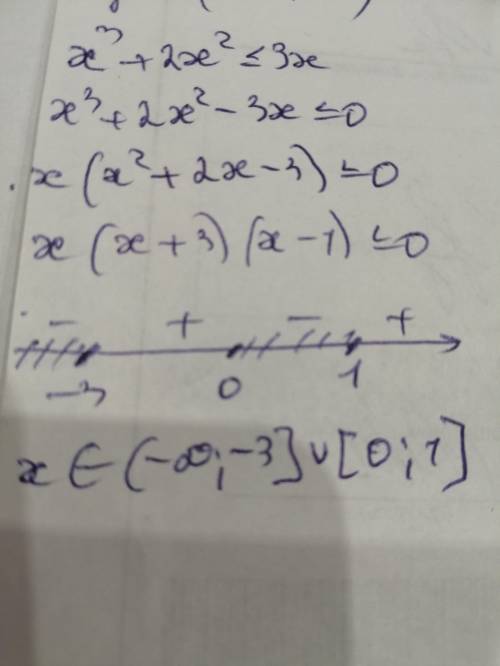 x³ + 2x² ≤ 3x
x³ + 2x² - 3x ≤ 0
x (x² + 2x - 3) ≤ 0
x (x + 3) (x - 1) ≤ 0
- + - +
-3 0 1
x ∈ (-∞; -3] ∪ [0; 1]